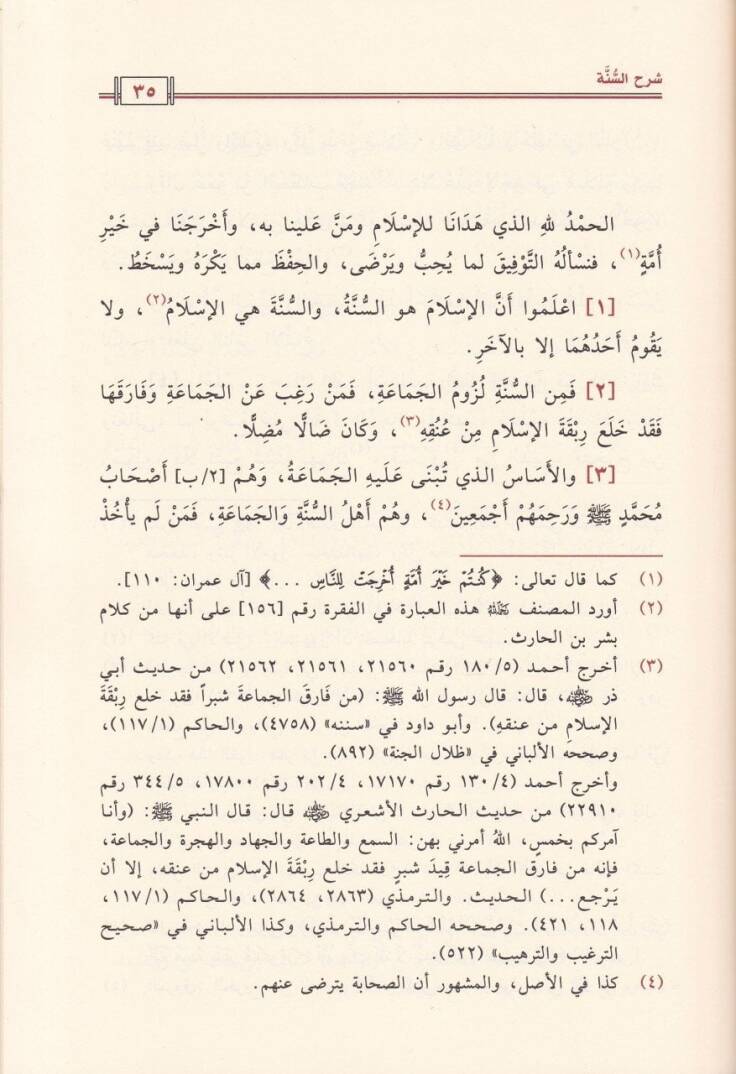 شرح السُّنَّة
٣٥
الحمْدُ للهِ الذي هَدَانَا للإسْلَامِ ومَنَّ عَلينا به، وأَخْرَجَنَا في خَيْرِ
أُمَّةٍ(١)، فنسْألُهُ التَّوْفِيقَ لما يُحِبُّ ويَرْضَى، والحِفْظَ مما يَكْرَهُ ويَسْخَطُ.
[١] اعْلَمُوا أنَّ الإسْلَامَ هو السُّنَّةُ، والسُّنَّةَ هي الإسْلَامُ(٢)، ولا
يَقُومُ أَحَدُهُمَا إلا بالآخَرِ.
[٢] فَمِن السُّنَّةِ لُزُومُ الجَمَاعَةِ، فَمْنَ رَغِبَ عَنْ الجَمَاعَةِ وَفَارَقَهَا
فَقَدْ خَلَعَ رِبْقَةَ الإسْلَامِ مِنْ عُنُقِهِ(٣)، وَكَانَ ضَالًّا مُضِلًّا.
[٣] والأَسَاسُ الذي تُبْنَى عَلَيهِ الجَمَاعَةُ، وَهُمْ [٢/ب] أَصْحَابُ
مُحَمَّدٍ ﷺ وَرَحِمَهُمْ أَجْمَعِينَ(٤)، وهُمْ أَهْلُ السُّنَّةِ وَالجَمَاعَةِ، فَمَنْ لَم يأْخُذْ
(١) كما قال تعالى: ﴿كُنتُمْ خَيْرَ أُمَّةٍ أُخْرِجَتْ لِلنَّاسِ ...﴾ [آل عمران: ١١٠].
(٢) أورد المصنف رحمه الله هذه العبارة في الفقرة رقم [١٥٦] على أنها من كلام
بشر بن الحارث.
(٣) أخرج أحمد (٥/ ١٨٠ رقم ٢١٥٦٠، ٢١٥٦١، ٢١٥٦٢) من حديث أبي
ذر رضي الله عنه، قال: قال رسول الله ﷺ: (من فَارقَ الجماعةَ شبراً فقد خلع رِبْقَةَ
الإسلامِ من عنقهِ). وأبو داود في «سننه» (٤٧٥٨)، والحاكم (١/ ١١٧)،
وصححه الألباني في «ظلال الجنة» (٨٩٢).
وأخرج أحمد (٤/ ١٣٠ رقم ١٧١٧٠، ٤/ ٢٠٢ رقم ١٧٨٠٠، ٥/ ٣٤٤ رقم
٢٢٩١٠) من حديث الحارث الأشعري رضي الله عنه قال: قال النبي ﷺ: (وأنا
آمركم بخمسٍ، اللهُ أمرني بهن: السمع والطاعة والجهاد والهجرة والجماعة،
فإنه من فارق الجماعة قِيدَ شبرٍ فقد خلع رِبْقَةَ الإسلام من عنقه، إلا أن
يَرْجع...) الحديث. والترمذي (٢٨٦٣، ٢٨٦٤)، والحاكم (١/ ١١٧،
١١٨، ٤٢١). وصححه الحاكم والترمذي، وكذا الألباني في «صحيح
الترغيب والترهيب» (٥٢٢).
(٤) كذا في الأصل، والمشهور أن الصحابة يترضى عنهم.